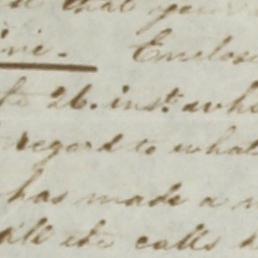 that your
ine. Enclos
26. inst. whi
regard to what
has made a
all the calls